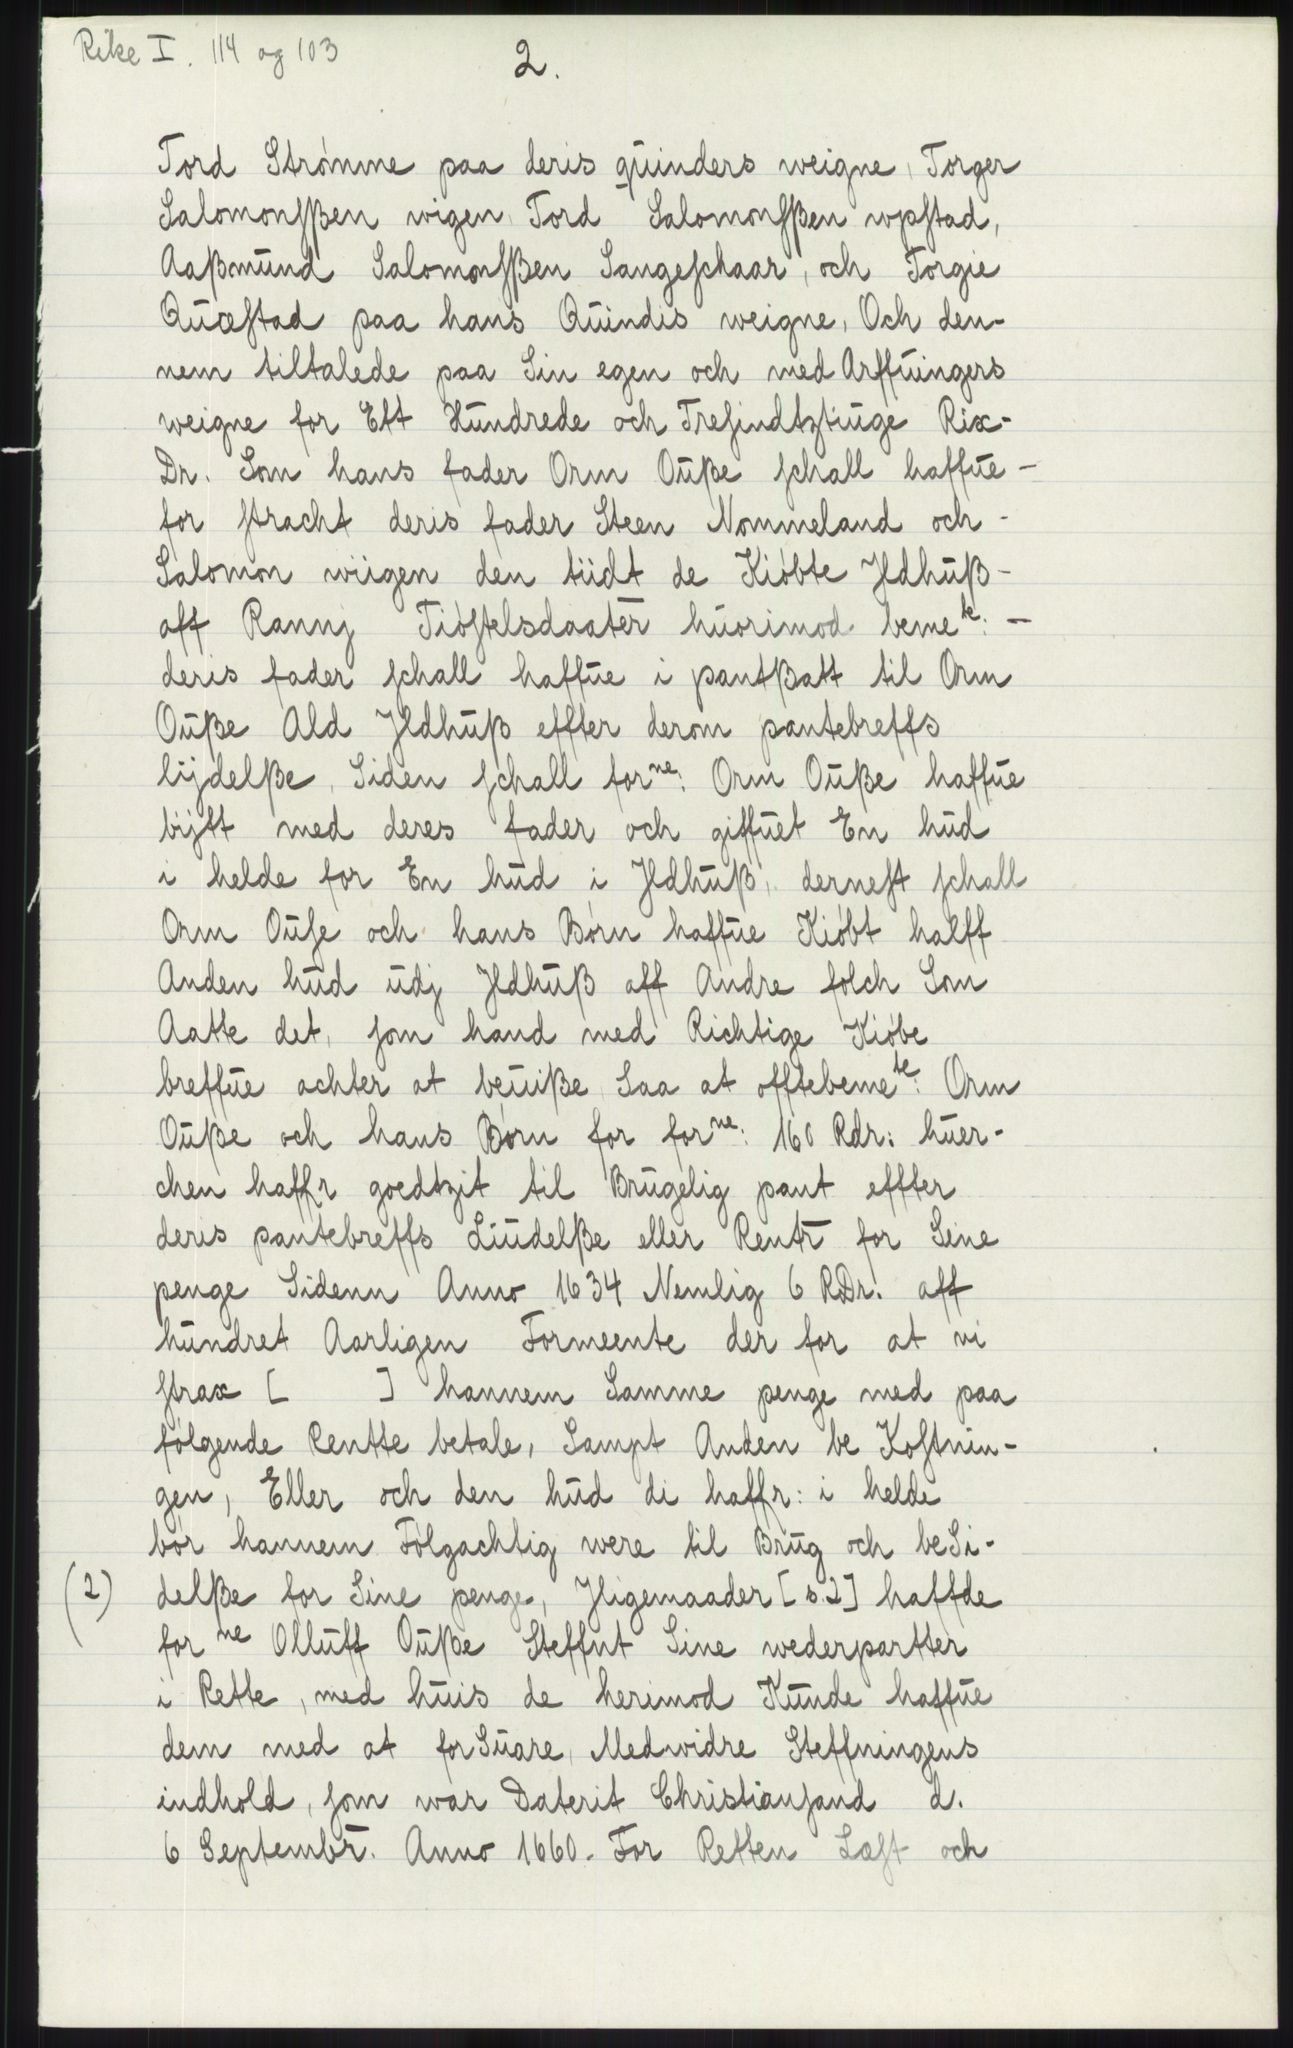 Rike I. 114 og 103
2.
Tord Strømme paa deris quinders weigne, Torger
Salomonsßen wigen, Tord Salomonsßen wpstad,
Aaßmund Salomonsßen Langeschaar, och Torgie
Quæstad paa hans Quindis weigne, Och den-
nem tiltalede paa Sin egen och med Arffuingers
weigne for Ett Hundrede och Tresindtztiuge Rix-
Dr. Som hans fader Orm Ouße schall haffue -
for stracht deris fader Steen Nommeland och -
Salomon wiigen den tiidt de Kiøbte Jldhuß -
aff Rannj Tiøstelsdaater huorimod beme te: -
deris fader schall haffue i pantßatt til Orm
Ouße Ald Jldhuß effter derom pantebreffs
lijdelße, Siden schall for ne: Orm Ouße haffue
bijtt med deres fader och giffuet En hud
i helde for En hud i Jldhuß, dernest schall
Orm Ouse och hans Børn haffue Kiøbt halff
Anden hud udj Jldhuß aff Andre folch Som
Aatte det, som hand med Richtige Kiøbe
breffue achter at beuiße Saa at offtebeme te: Orm
Ouße och hans Børn for for ne: 160 Rdr: huer-
chen haffr goedtzit til Brugelig pant effter
deris pantebreffs Liudelße eller Rentr for Sine
penge Sidenn Anno 1634 Nemlig 6 RDr. aff
hundret Aarligen Formeente der for at vi
strax [ ] hannem Samme penge med paa
følgende Rentte betale, Sampt Anden be Kostnin-
gen, Eller och den hud di haffr: i helde
bør hannem Følgachtig were til Brug och beSi-
(2) delße for Sine penge, Jligemaader [s.2] haffde
for ne Olluff Ouße Steffnt Sine wederpartter
i Rette, med huis de herimod Kunde haffue
dem med at forSuare, Medwidre Steffningens
indhold, som war Daterit Christiansand d.
6 Septembr. Anno 1660. For Retten Læst och